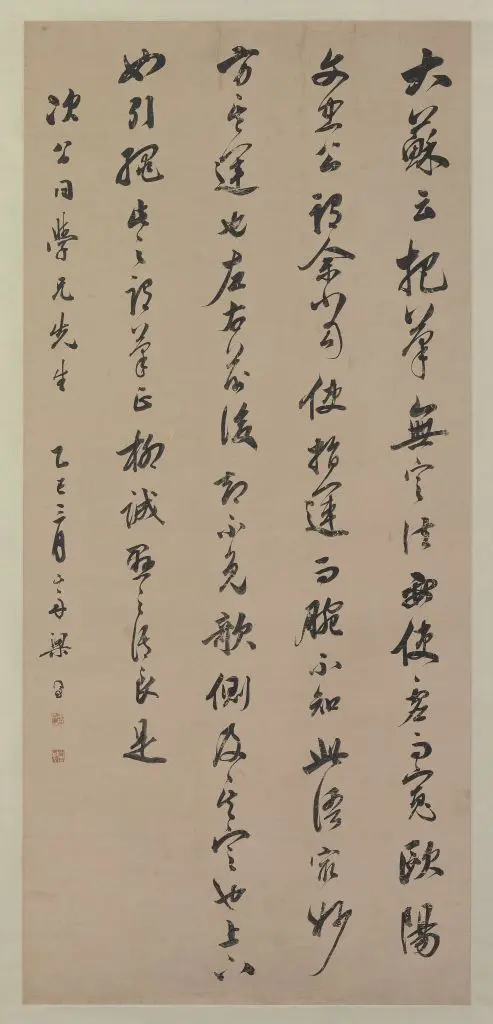 大蘇云把筆無定法要使虛而寬歐陽
文忠公謂余當使指運而腕不知此語最妙
方其運也左右前後卻不免欹側及其定也上下
如引繩此之謂筆正柳誠懸之語良是
次公同學兄先生 乙巳三月山舟梁同書